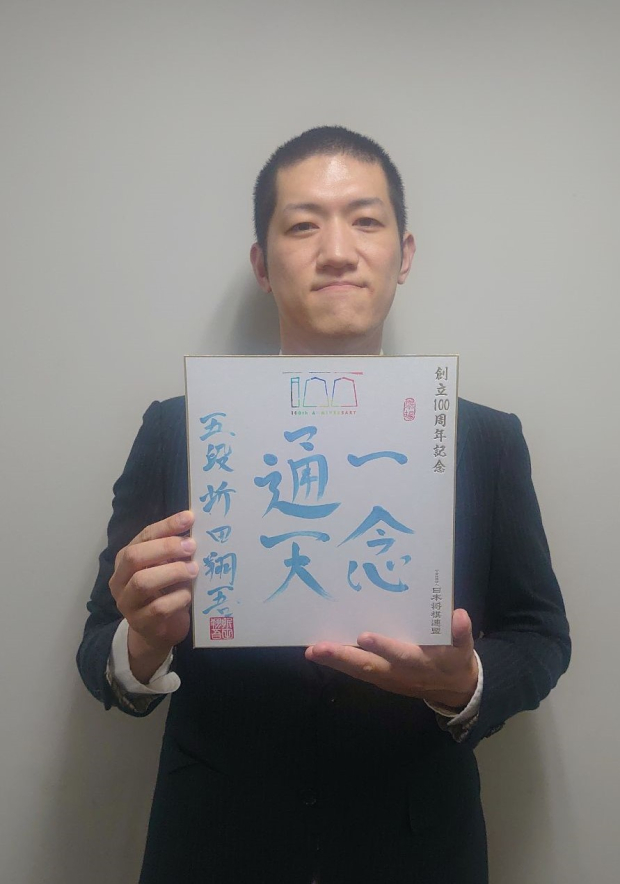 創立100周年記念
100TH ANNIVERSARY
一念
通天
五段 折田翔吾
日本将棋連盟